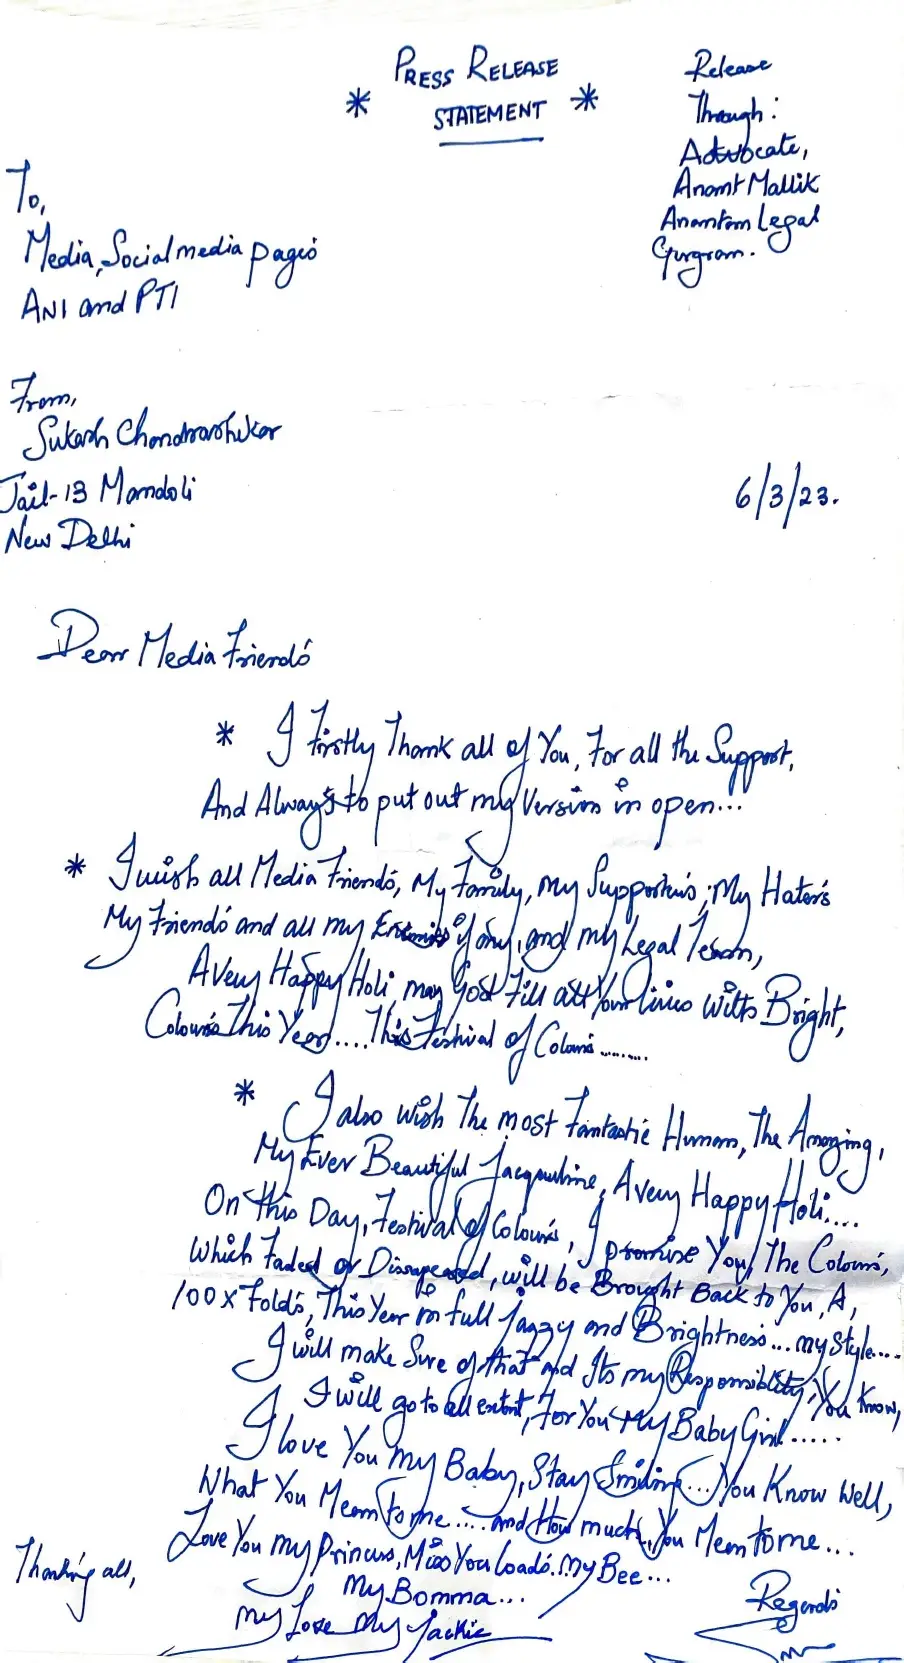 * PRESS RELEASE
STATEMENT *
Release
Through:
Advocate,
Anant Mallik
Anantam Legal
Gurgram.
To,
Media, Social media pages
ANI and PTI
From,
Sukash Chandrashekar
Jail-13 Mandoli
New Delhi
6/3/23.
Dear Media Friends
* I Firstly Thank all of You, For all the Support,
And Always to put out my Version in open...
* I wish all Media Friends, My Family, my Supporters, My Haters
My Friends and all my Enemies if any, and my Legal Team,
A Very Happy Holi, may God Fill all Your lives with Bright,
Colours This Year.... This Festival of Colours.........
* I also wish The most Fantastic Human, The Amazing,
My Ever Beautiful Jacqueline, A very Happy Holi....
On This Day, Festival of Colours, I promise You, The Colours,
Which Faded or Dissapeared, will be Brought Back to You, A,
100 x Folds, This Year in full Jazzy and Brightness... my Style....
I will make Sure of that and Its my Responsiblity, You Know,
I will go to all extent, For You My Baby Girl.....
I love You my Baby, Stay Smiling... You Know Well,
What You Mean to me.... and How much You Mean to me...
Love You my Princess, Miss You loads. My Bee...
My Bomma...
My Love My Jackie
Thanking all,
Regards